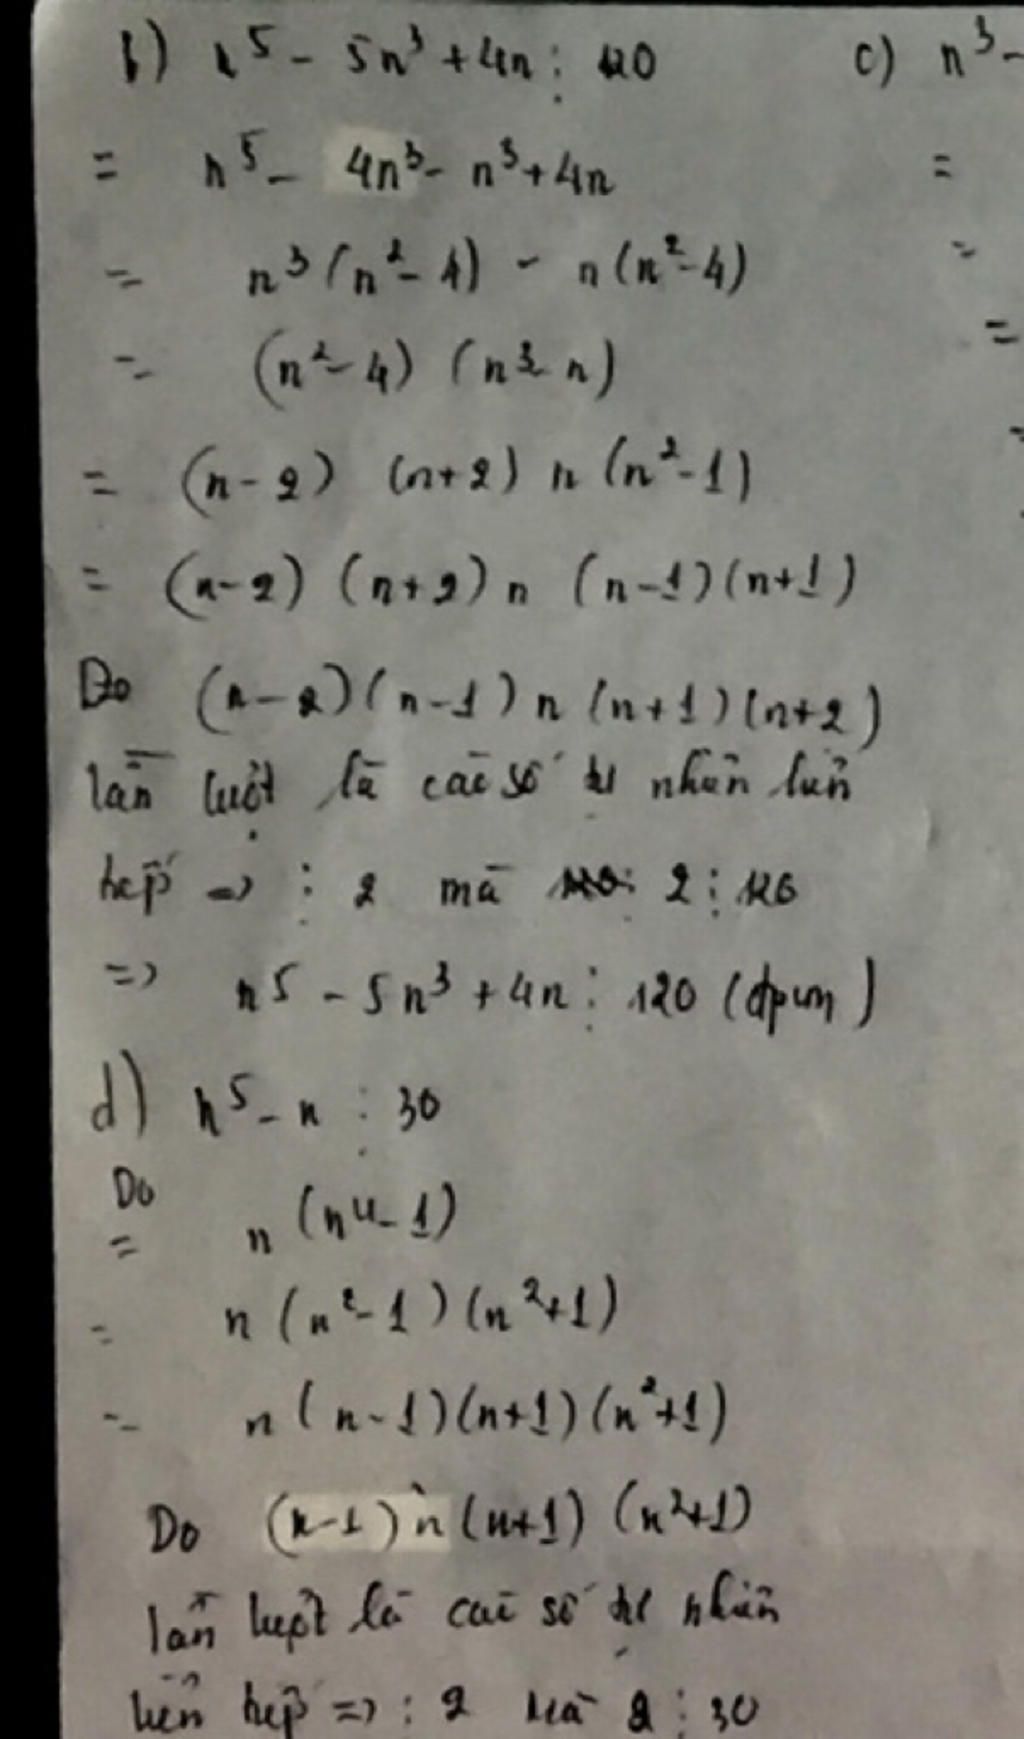 b) n⁵ - 5n³ + 4n ⋮ 120
= n⁵ - 4n³ - n³ + 4n
= n³(n² - 4) - n(n² - 4)
= (n² - 4) (n³ - n)
= (n - 2) (n + 2) n (n² - 1)
= (n - 2) (n + 2) n (n - 1)(n + 1)
Do (n - 2)(n - 1) n (n + 1)(n + 2)
lần lượt là các số tự nhiên liên
tiếp => ⋮ 2 mà 2 ⋮ 120
=> n⁵ - 5n³ + 4n ⋮ 120 (đpcm)
d) n⁵ - n ⋮ 30
Do
= n (n⁴ - 1)
= n (n² - 1)(n² + 1)
= n (n - 1)(n + 1)(n² + 1)
Do (n - 1) n (n + 1) (n² + 1)
lần lượt là các số tự nhiên
liên tiếp => ⋮ 2 mà 2 ⋮ 30
c) n³ -
=
=
=